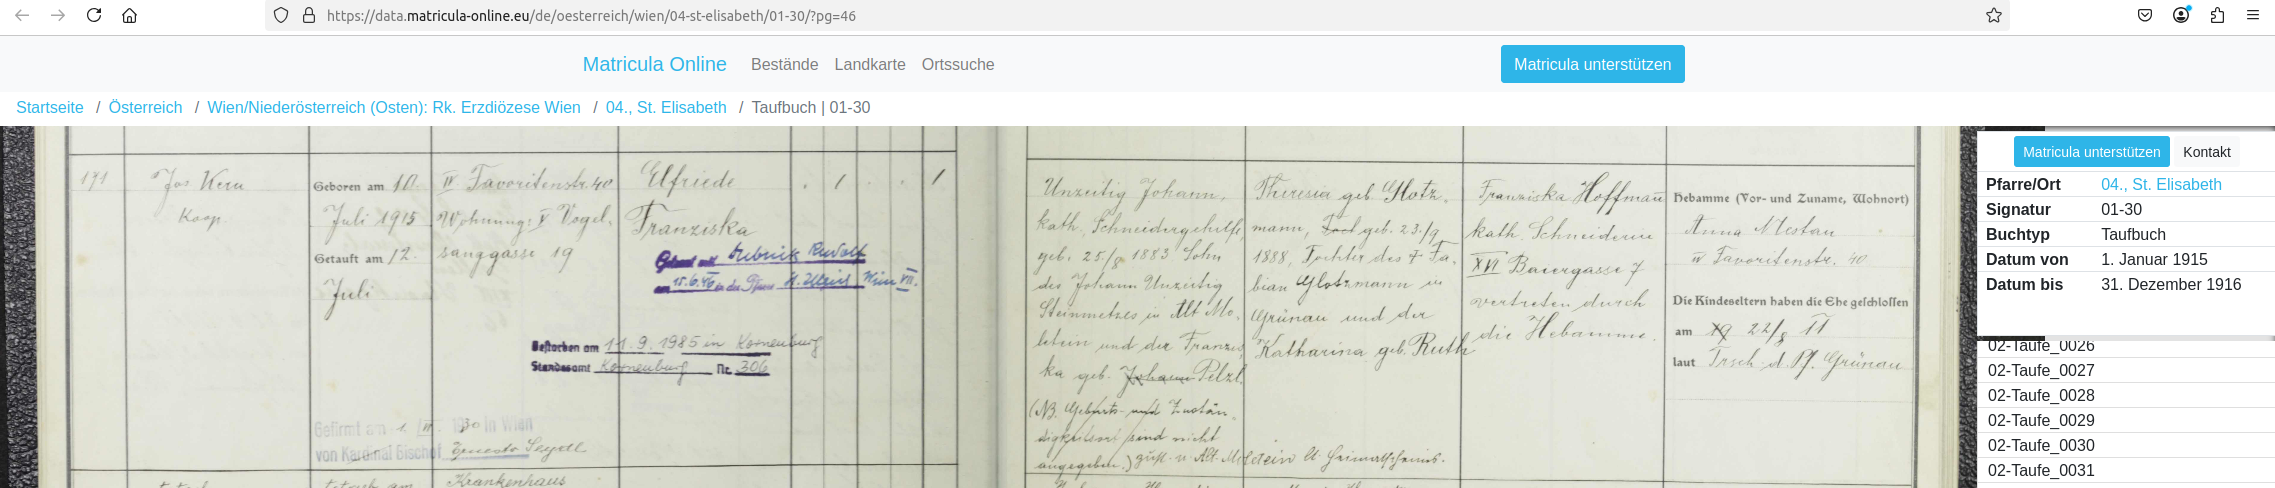 https://data.matricula-online.eu/de/oesterreich/wien/04-st-elisabeth/01-30/?pg=46
Matricula Online Bestände Landkarte Ortssuche Matricula unterstützen
Startseite / Österreich / Wien/Niederösterreich (Osten): Rk. Erzdiözese Wien / 04., St. Elisabeth / Taufbuch | 01-30
171
Jos. Kern
Koop.
Geboren am 10.
Juli 1915
Getauft am 12.
Juli
IV Favoritenstr. 40
Wohnung: V Vogel-
sanggasse 19
Elfriede
Franziska
1 1
Getraut mit Rudolf
am 15.6.46 in der Pfarre St. Ulrich Wien VII.
Gestorben am 11.9.1985 in Korneuburg
Standesamt Korneuburg Nr. 306
Gefirmt am 1. 30 in Wien
von Kardinal Bischof Ernesto Seydl
Krankenhaus
Unzeitig Johann,
kath., Schneidergehilfe,
geb. 25/8 1883 Sohn
des Johann Unzeitig
Steinmetzes in Alt Mo-
letein und der Franzis-
ka geb. Johann Pelzl.
(NB. Geburts- und Zustän-
digkeitsort sind nicht
angegeben.) zust. n. Alt-Moletein lt. Heimatschein.
Theresia geb. Glotz-
mann, geb. 23/9
1888, Tochter des Fa-
bian Glotzmann in
Grünau und der
Katharina geb. Ruth
Franziska Hoffmann
kath. Schneiderin
XVI Baiergasse 7
vertreten durch
die Hebamme.
Hebamme (Vor- und Zuname, Wohnort)
Anna Mestan
IV Favoritenstr. 40
Die Kindeseltern haben die Ehe geschlossen
am 19 22/8 11
laut Trsch. d. Pf. Grünau
Matricula unterstützen Kontakt
Pfarre/Ort 04., St. Elisabeth
Signatur 01-30
Buchtyp Taufbuch
Datum von 1. Januar 1915
Datum bis 31. Dezember 1916
02-Taufe_0026
02-Taufe_0027
02-Taufe_0028
02-Taufe_0029
02-Taufe_0030
02-Taufe_0031